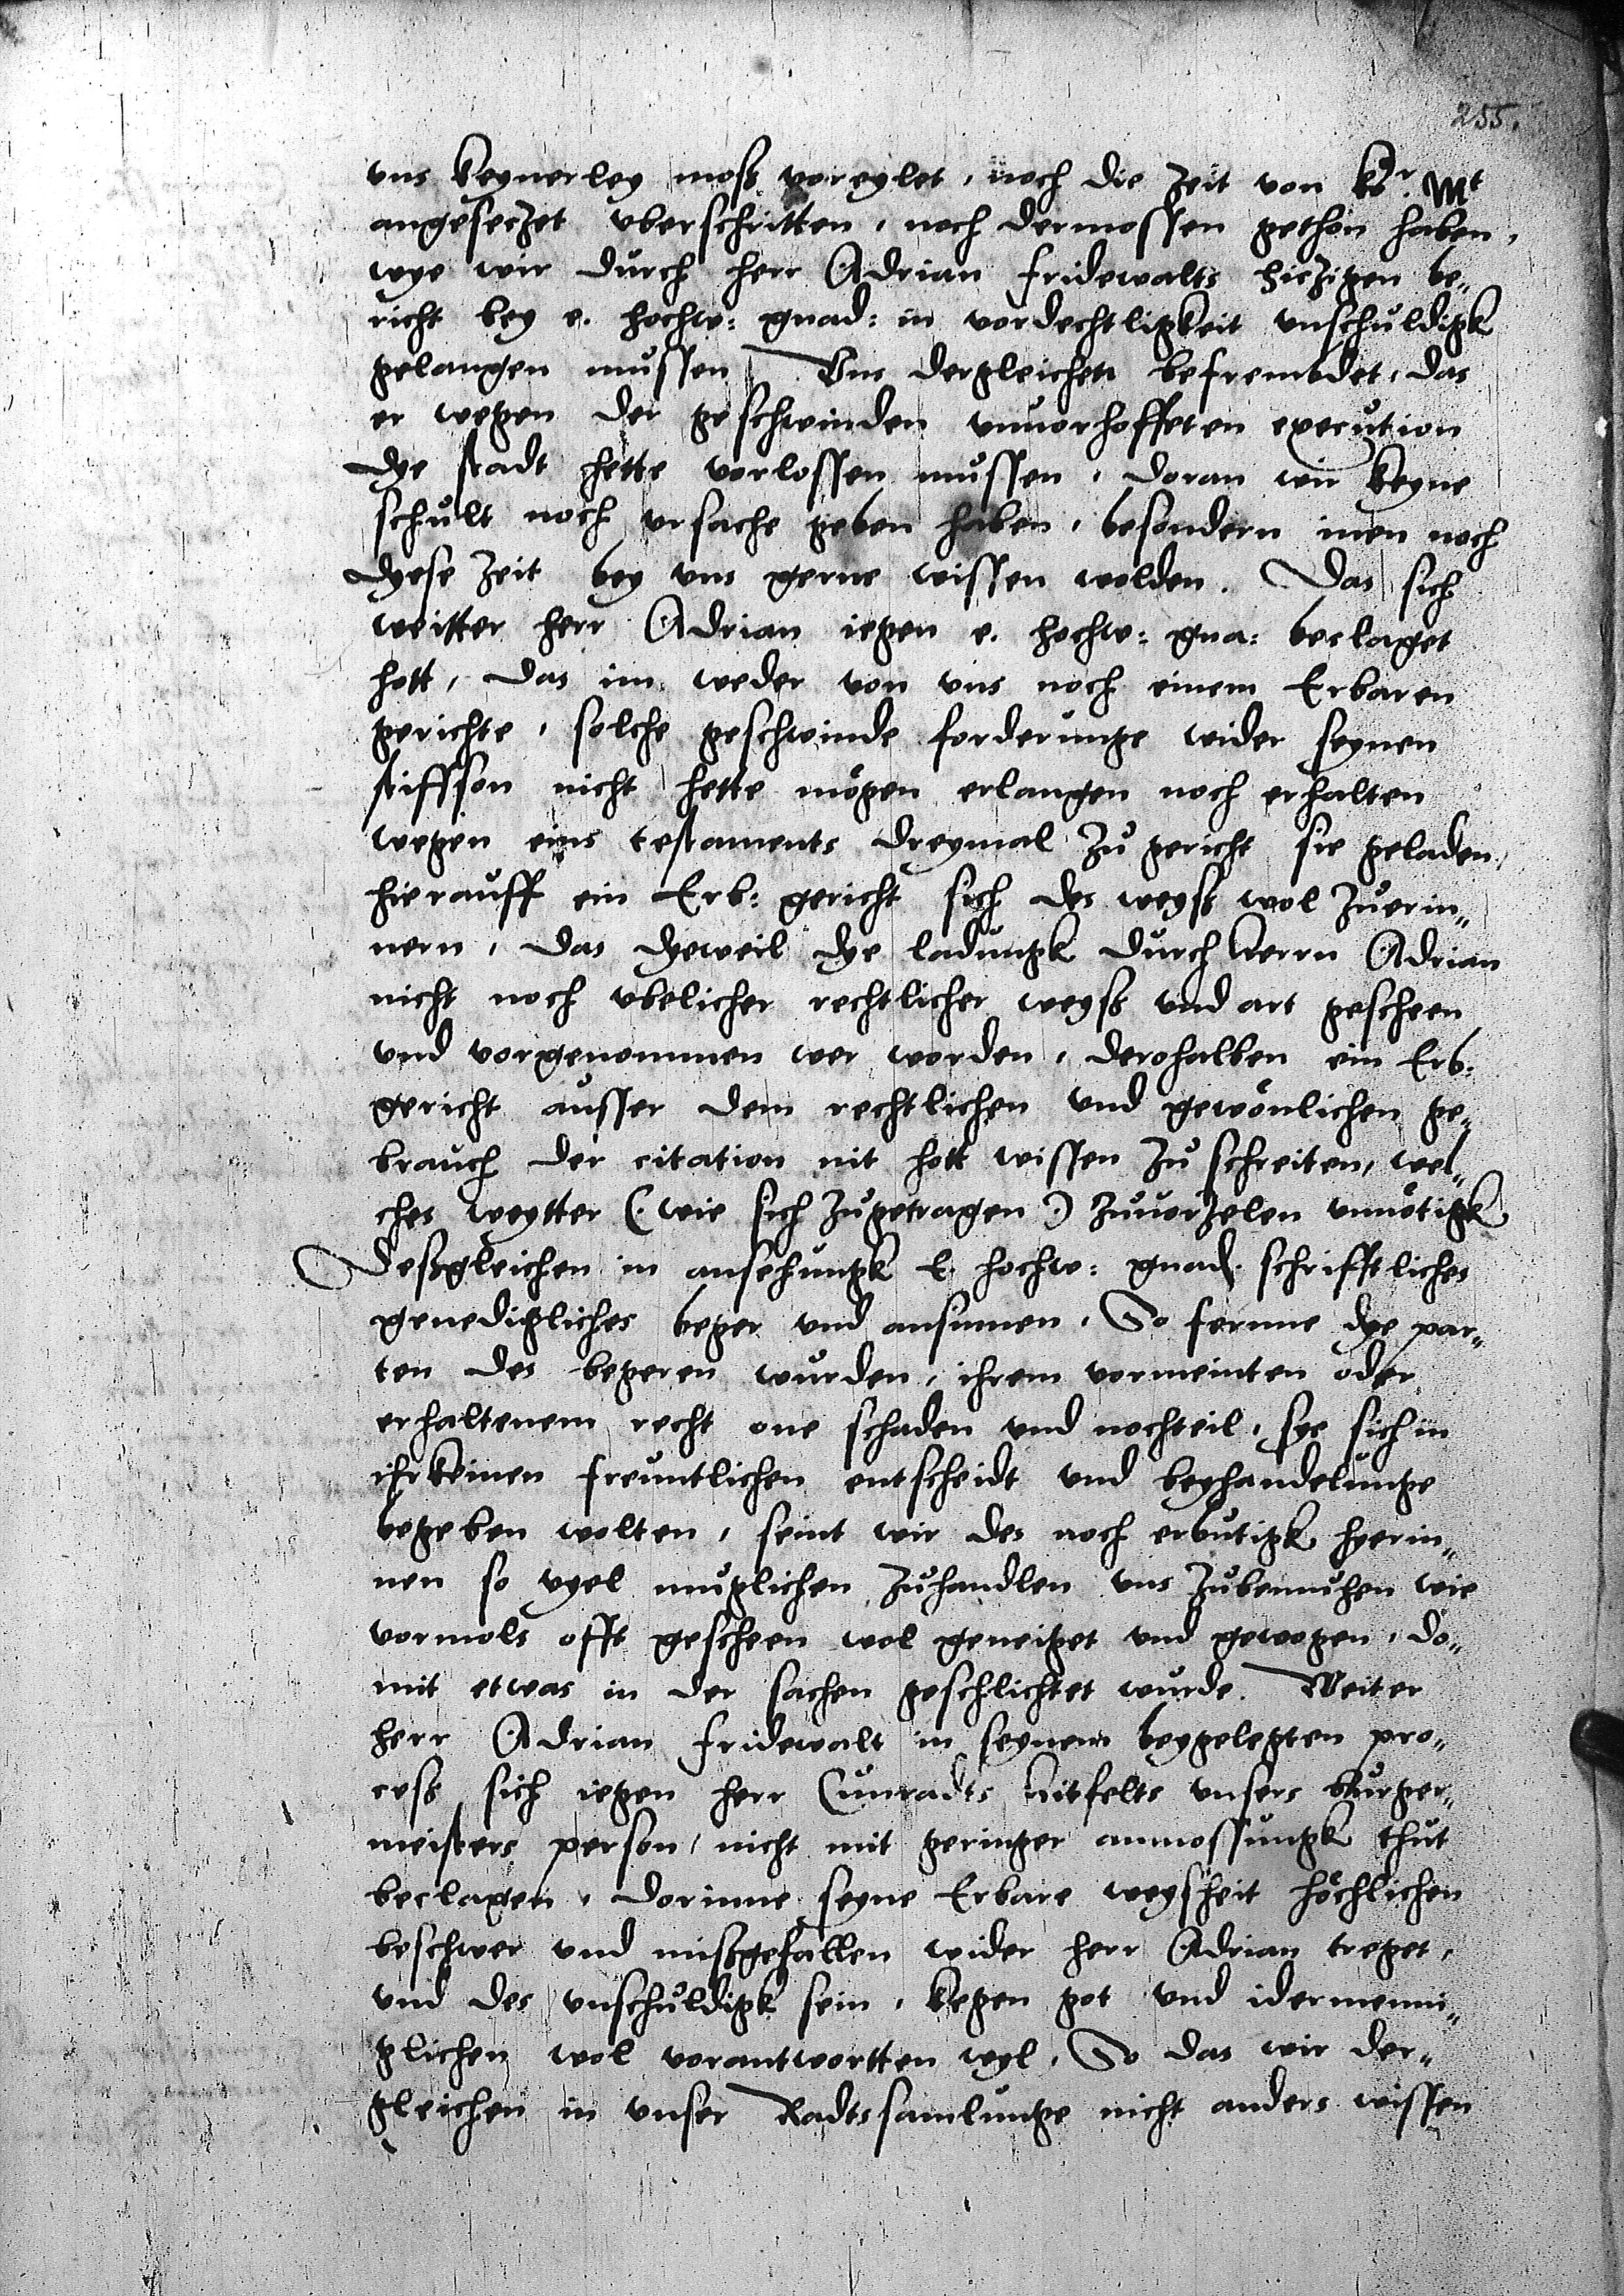 255.
vns keynerley moß voreylet, noch die zeit von kor. Mt
angesetzet vberschritten, noch dermossen gethon haben,
wye wir durch herr Adrian fridewalts hitzigen be„
richt bey e. hochw: gnad: in vordechtligkeit vnschuldigk
gelangen mussen Vns dergleichen befrembdet, das
er wegen der geschwinden vnuorhoffeten execution
dye stadt hette vorlossen mussen, doran wir keyne
schult noch vrsache geben haben, besondern inen noch
dyese zeit bey vns gerne wissen wolden. Das sich
weitter herr Adrian iegen e. hochw: gna: beclaget
hott, das im weder von vns noch einem Erbaren
gerichte, solche geschwinde forderunge wider seynen
stiffson nicht hette mögen erlangen noch erhalten
wegen eins testaments dreymal zu gericht sie geladen,
hierauff ein Erb: gericht sich des weyß wol zuerin„
nern, das dyeweil dye ladungk durch herrn Adrian
nicht noch vbelicher rechtlicher weyß vnd art gescheen
vnd vorgenommen wer worden, derohalben ein Erb:
gericht ausser dem rechtlichen vnd gewönlichen ge„
brauch der citation nit hott wissen zu schreiten, wel„
ches weytter (: wie sich zugetragen :) zuuorzelen vnnötigk
Deßgleichen in ansehungk E. hochw: gnad. schrifftliches
genedigliches beger vnd ansinnen, So ferrne dye par„
ten des begeren wurden, ihrem vormeinten oder
erhaltenem recht one schaden vnd nochteil, sye sich in
ihrkeinen freuntlichen entscheidt vnd beyhandelunge
begeben wolten, seint wir des noch erbutigk hyerin„
nen so vyel muglichen zuhandlen vns zubemuhen wie
vormols offt gescheen wol geneiget vnd gewogen, do„
mit etwas in der sachen geschlichtet wurde. Weiter
herr Adrian fridewalt in seynem beygelegten pro„
ceß sich iegen herr Cunradts hitfelts vnsers burger„
meisters person, nicht mit geringer anmossungk thut
beclagen, dorinne seyne Erbare weysheit höchlichen
beschwer vnd mißgefallen wider herr Adrian treget,
vnd des vnschuldigk sein, kegen got vnd idermenni„
glichen wol vorantwortten wyl, So das wir der„
gleichen in vnser Radtssamlunge nicht anders wissen